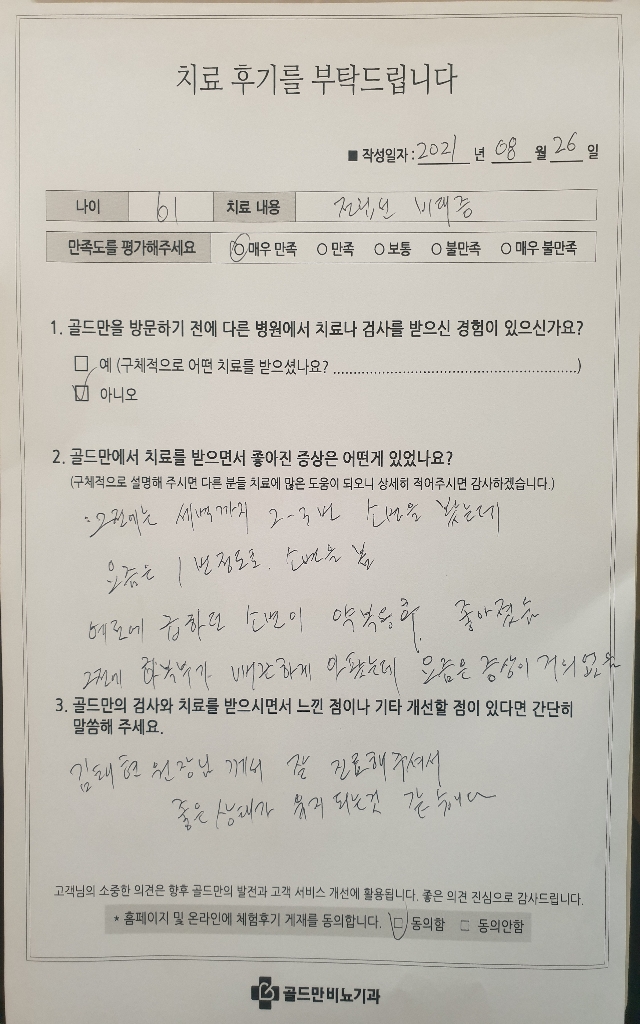 치료 후기를 부탁드립니다
■ 작성일자 : 2021 년 08 월 26 일
나이 61 치료 내용 전립선 비대증
만족도를 평가해주세요 ○ 매우 만족 ○ 만족 ○ 보통 ○ 불만족 ○ 매우 불만족
1. 골드만을 방문하기 전에 다른 병원에서 치료나 검사를 받으신 경험이 있으신가요?
□ 예 (구체적으로 어떤 치료를 받으셨나요? ........................................................)
☑ 아니오
2. 골드만에서 치료를 받으면서 좋아진 증상은 어떤게 있었나요?
(구체적으로 설명해 주시면 다른 분들 치료에 많은 도움이 되오니 상세히 적어주시면 감사하겠습니다.)
: 그전에는 새벽까지 2-3번 소변을 봤는데
요즘은 1번정도로. 소변을 봄
급하던 소변이 약복용후. 좋아졌음
그전에 하복부가 안좋았는데 요즘은 증상이 거의 없음
3. 골드만의 검사와 치료를 받으시면서 느낀 점이나 기타 개선할 점이 있다면 간단히
말씀해 주세요.
김태현 원장님 께서 잘 진료해주셔서
좋은 상태가 유지 되는것 같습니다
고객님의 소중한 의견은 향후 골드만의 발전과 고객 서비스 개선에 활용됩니다. 좋은 의견 진심으로 감사드립니다.
* 홈페이지 및 온라인에 체험후기 게재를 동의합니다. ☑ 동의함 □ 동의안함
골드만비뇨기과